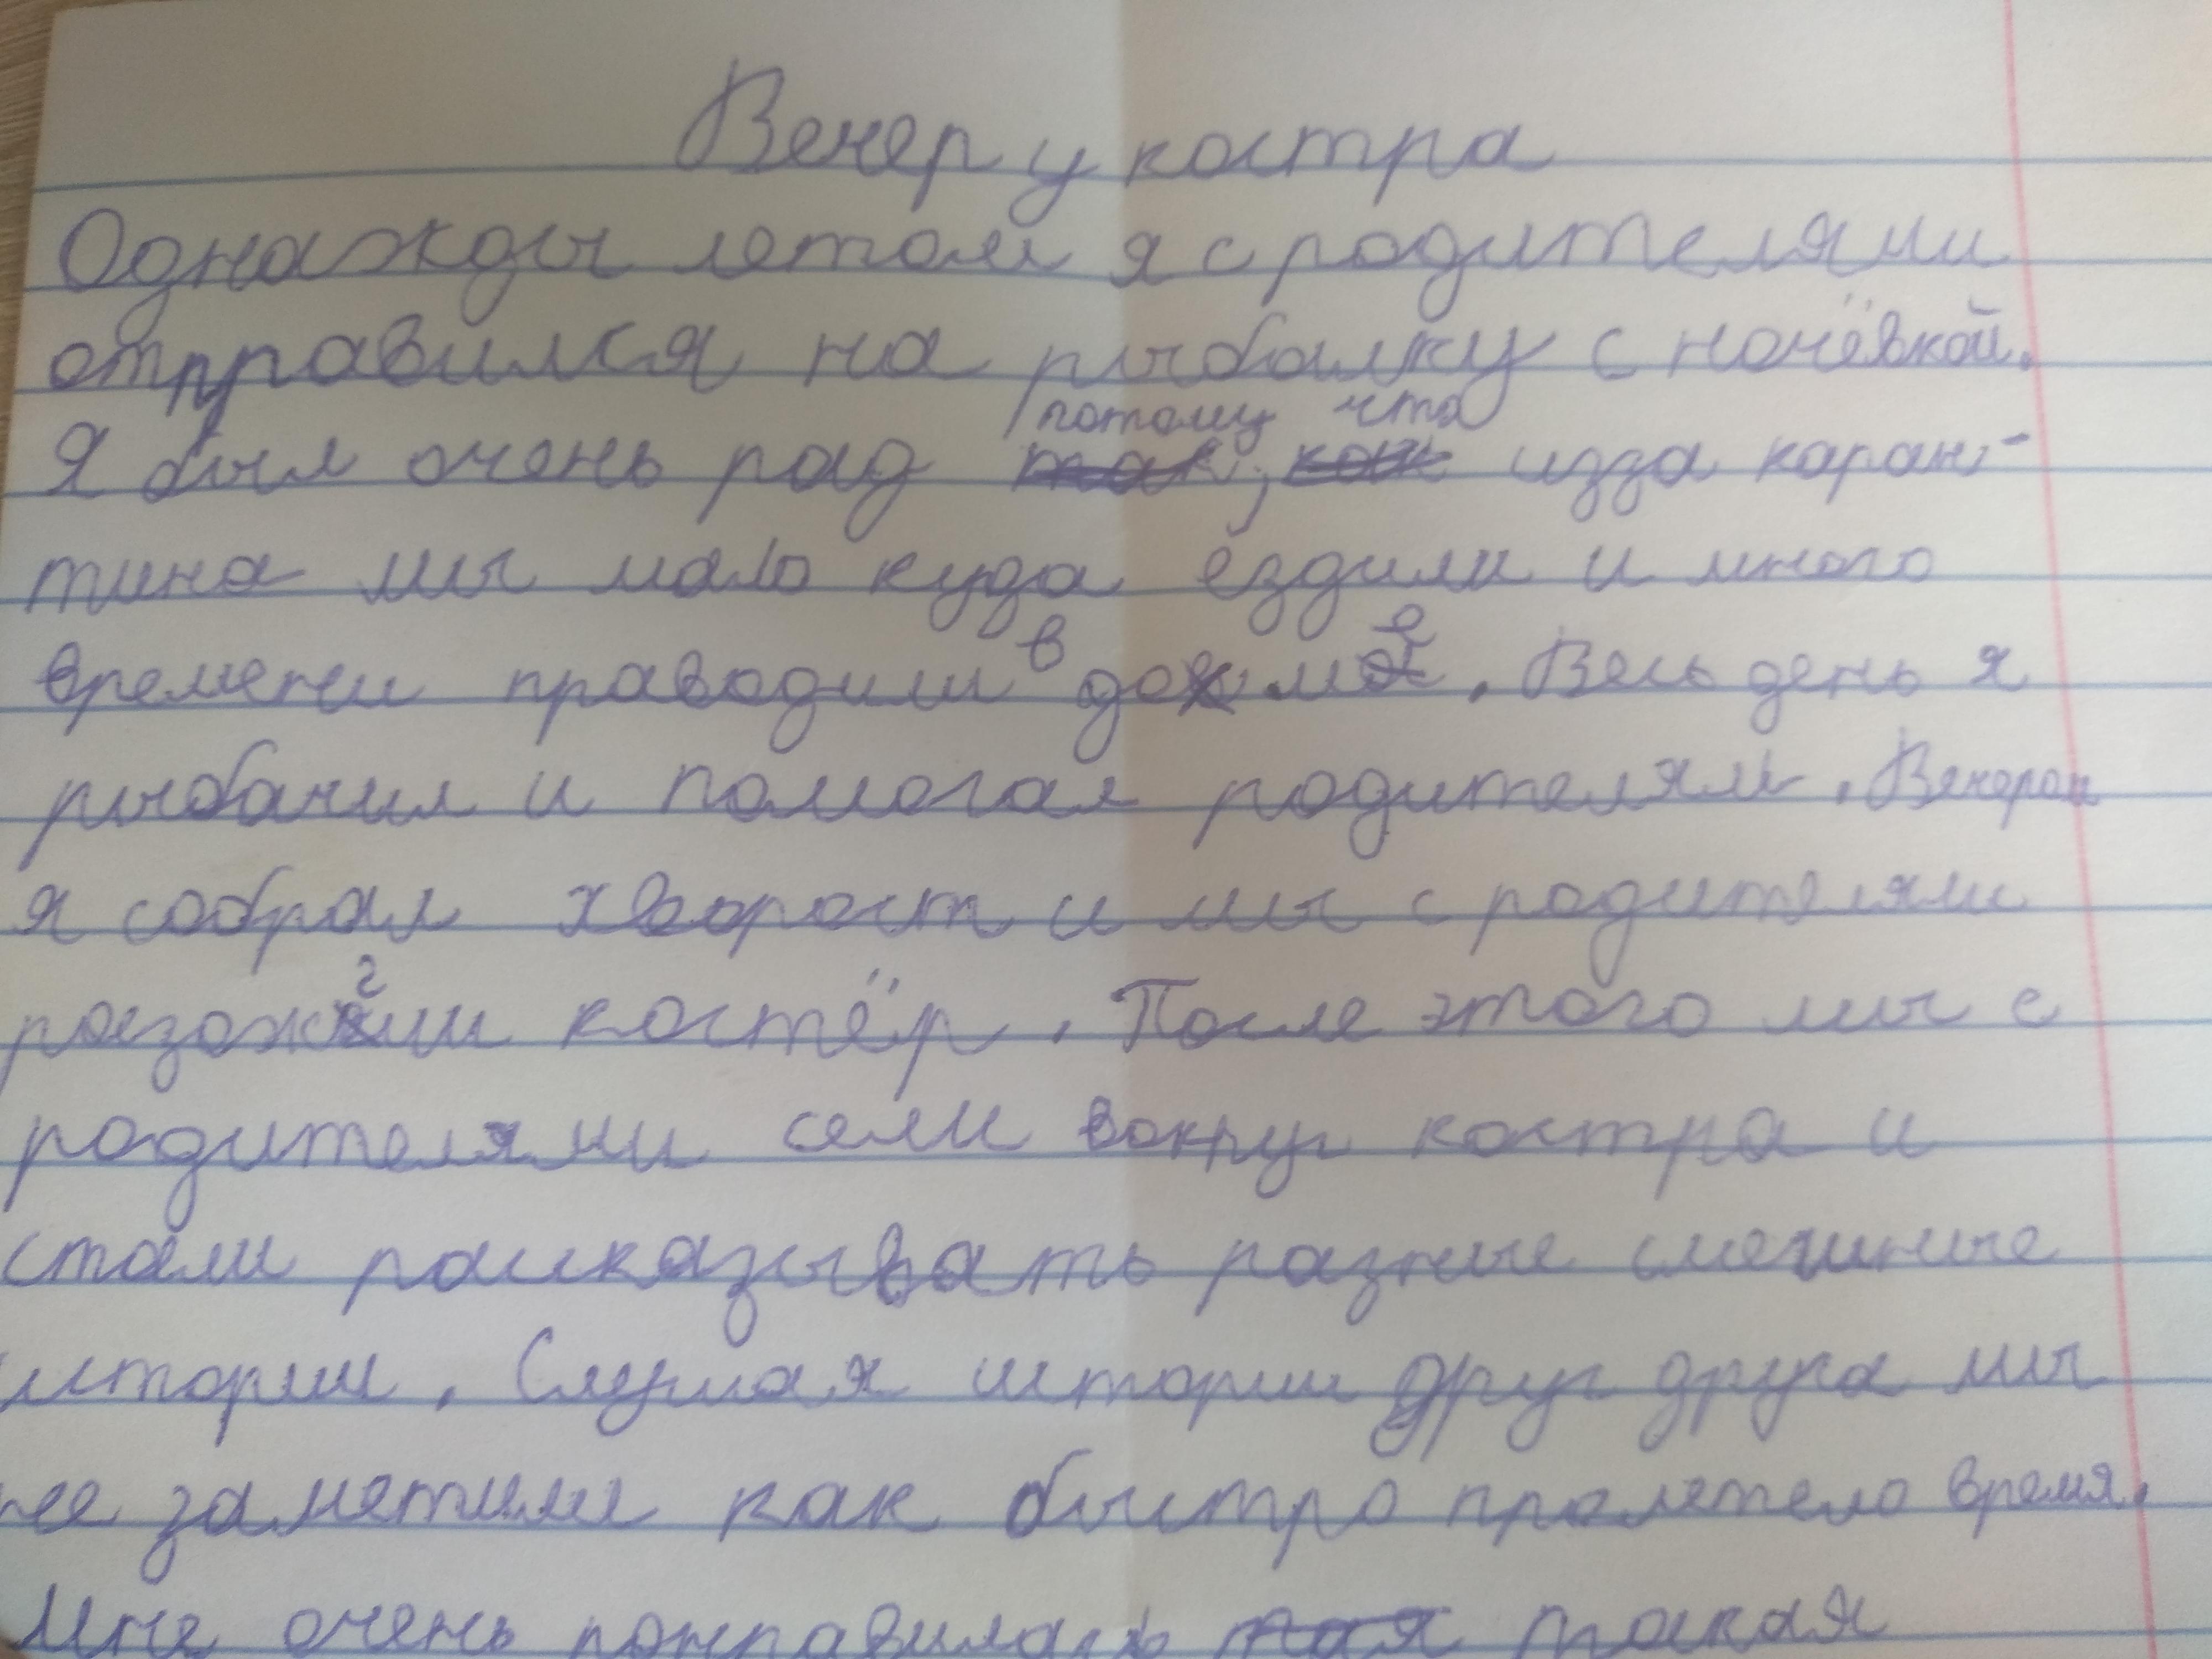 Вечер у костра
Однажды летом я с родителями
отправился на рыбалку с ночёвкой.
потому что
Я был очень рад так, как изза каран-
тина мы мало куда ездили и много
времени праводили в доме. Весь день я
рыбачил и помогал родителям. Вечером
я собрал хворост и мы с родителями
разожгли костёр. После этого мы с
родителями сели вокруг костра и
стали рассказывать разные смешные
истории. Слушая истории друг друга мы
не заметили как быстро пролетело время.
Мне очень понравилась такая